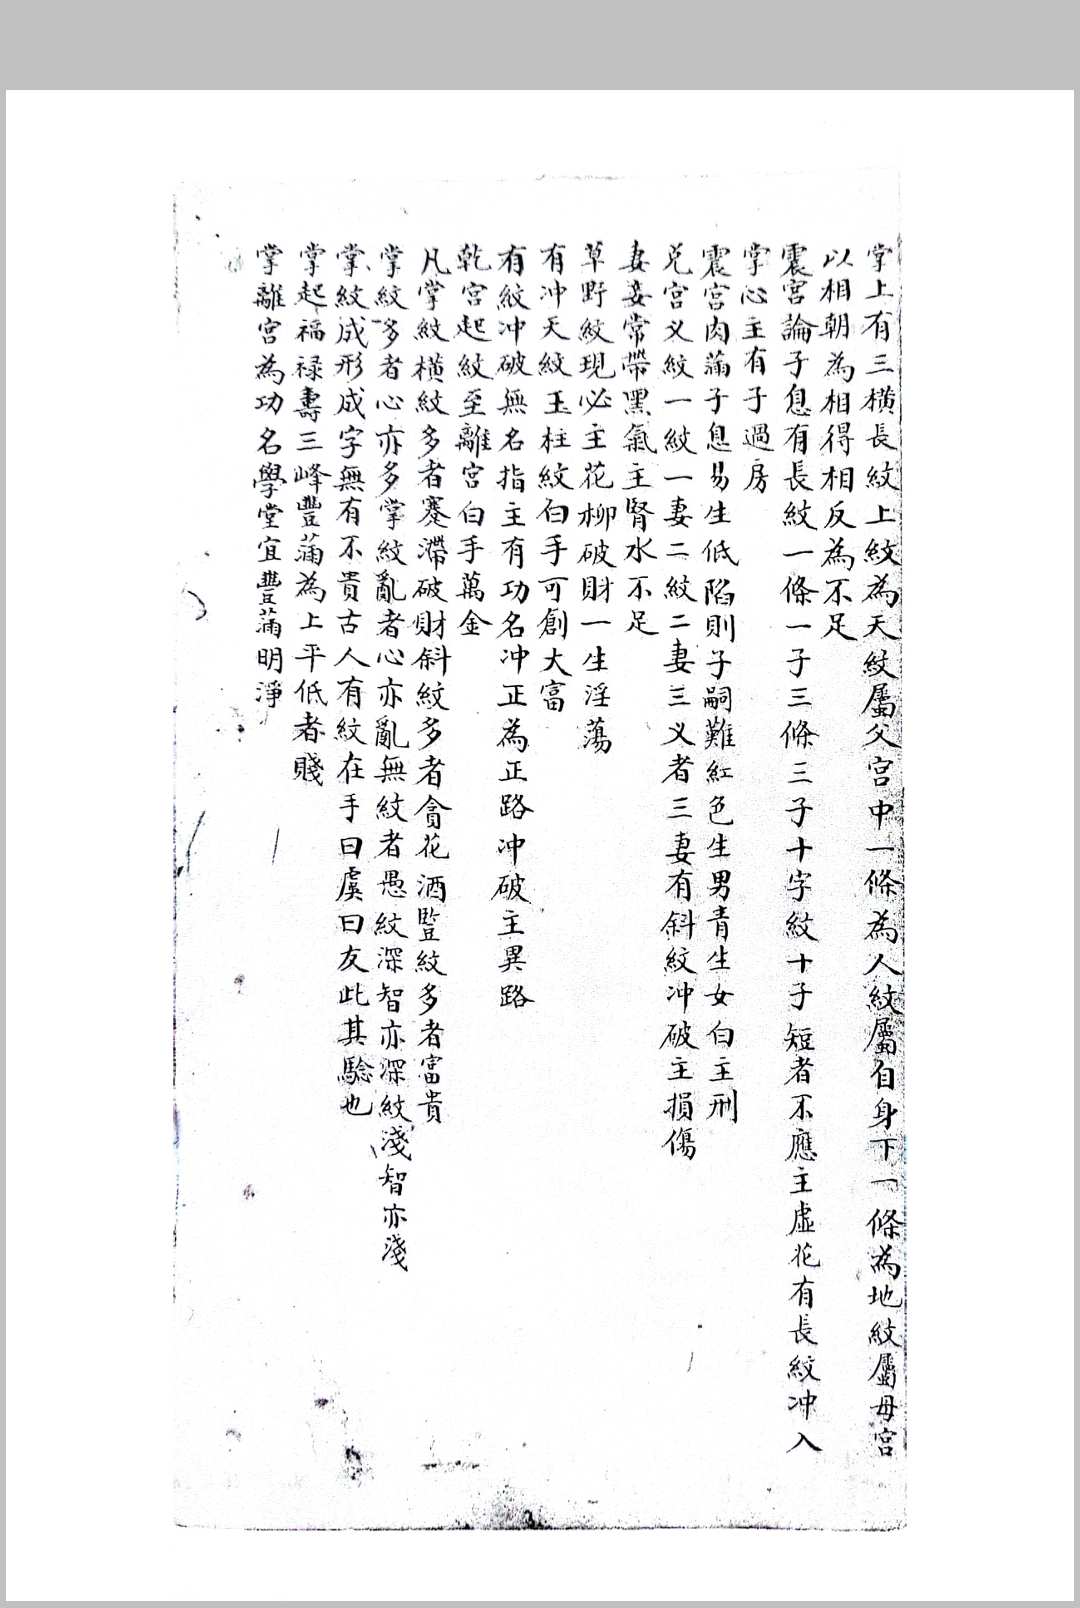 掌上有三横長紋上紋為天紋屬父宫中一條為人紋屬自身下一條為地紋屬母宫
以相朝為相得相反為不足
震宫論子息有長紋一條一子三條三子十字紋十子短者不應主虚花有長紋冲入
掌心主有子過房
震宫肉滿子息易生低陷則子嗣難紅色生男青生女白主刑
兑宫义紋一紋一妻二紋二妻三义者三妻有斜紋冲破主損傷
妻妾常帶黑氣主腎水不足
草野紋現必主花柳破財一生淫蕩
有冲天紋玉柱紋白手可創大富
有紋冲破無名指主有功名冲正為正路冲破主異路
乾宫起紋至離宫白手萬金
凡掌紋横紋多者蹇滯破財斜紋多者貪花酒豎紋多者富貴
掌紋多者心亦多掌紋亂者心亦亂無紋者愚紋深智亦深紋淺智亦淺
掌紋成形成字無有不貴古人有紋在手曰虞曰友此其驗也
掌起福禄壽三峰豐滿為上平低者賤
掌離宫為功名學堂宜豐滿明淨